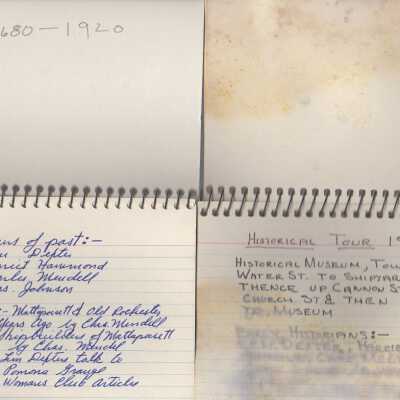 680-1920
ns of past:-
Dexter
Hammond
Mendell
Johnson
:- Mattapoisett & Old Rochester
Ago by Chas. Mendell
Shipbuilders of Mattapoisett
by Chas. Mendell
Dexter talk to
Pomona Grange
Womans Club Articles
HISTORICAL TOUR 19
HISTORICAL MUSEUM, TOW
WATER ST. TO SHIPYAR
THENCE UP CANNON S
CHURCH ST & THEN
TO MUSEUM
HISTORIANS:-
DEXTER, HARRIE